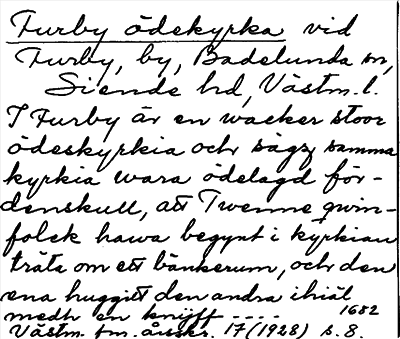 Furby ödekyrka vid
Furby, by, Badelunda sn,
Siende hd, Västm. l.
I Furby är en wacker stoor
ödeskyrkia och sägz samma
kyrkia wara ödelagd för-
denskull, att Twenne qwin-
folck hawa begynt i kyrkian
träta om ett bänkerum, och den
ena huggit den andra ihiäl
medh en knijff ---- 1682
Västm. fm. årsskr. 17 (1928) s. 8.